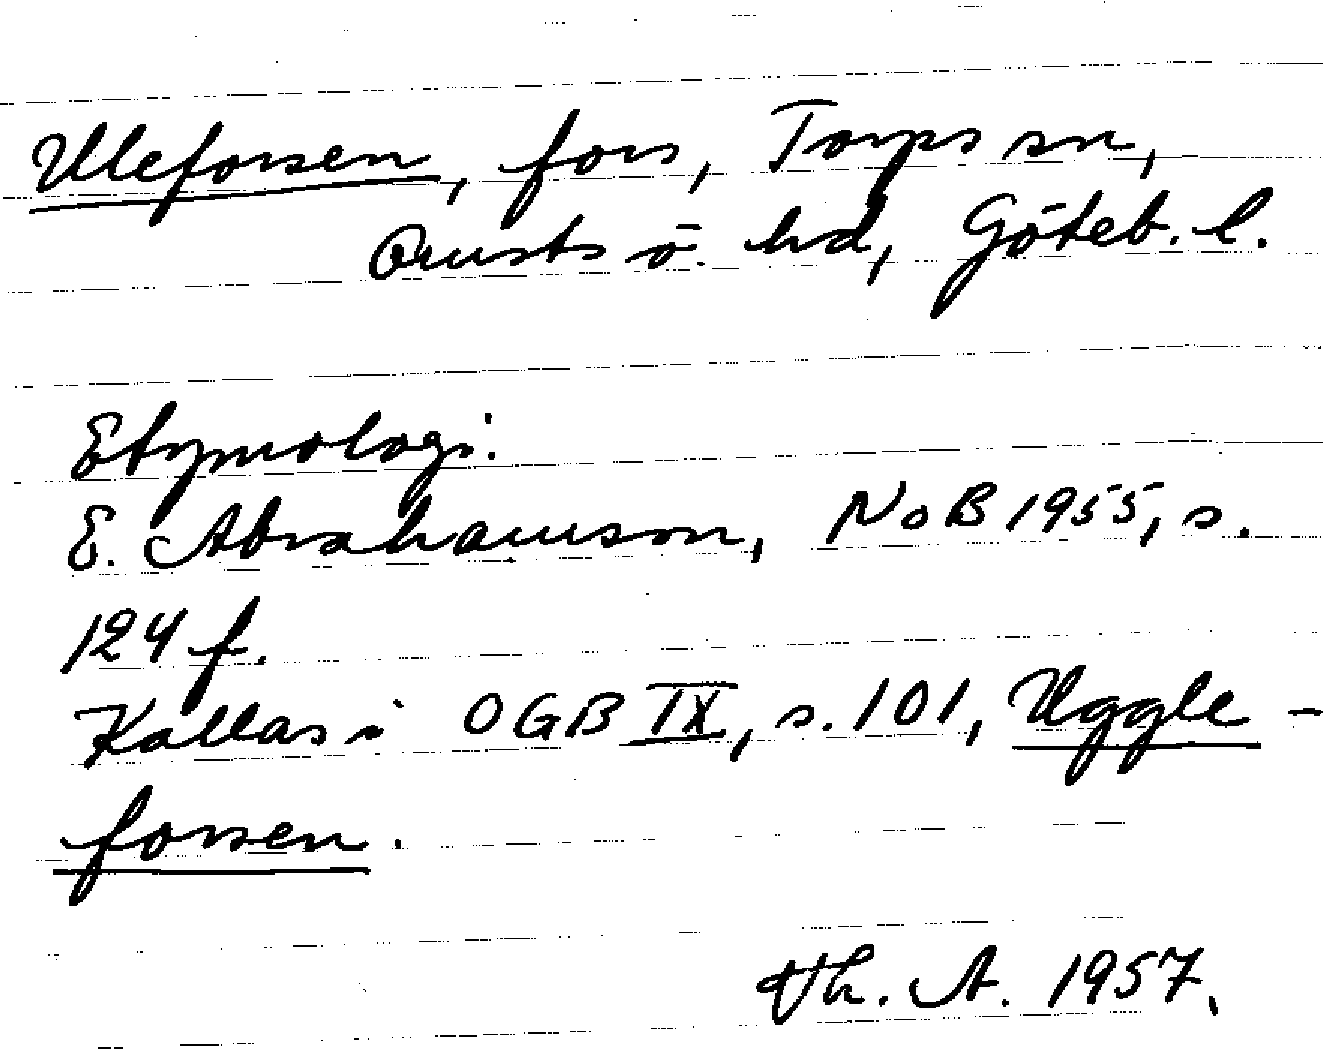 Uleforsen, fors, Torps sn,
Orusts ö. hd, Göteb. l.
Etymologi:
E. Abrahamson, NoB 1955, s.
124 f.
Kallas i OGB IX, s. 101, Uggle-
forsen.
Th. A. 1957.